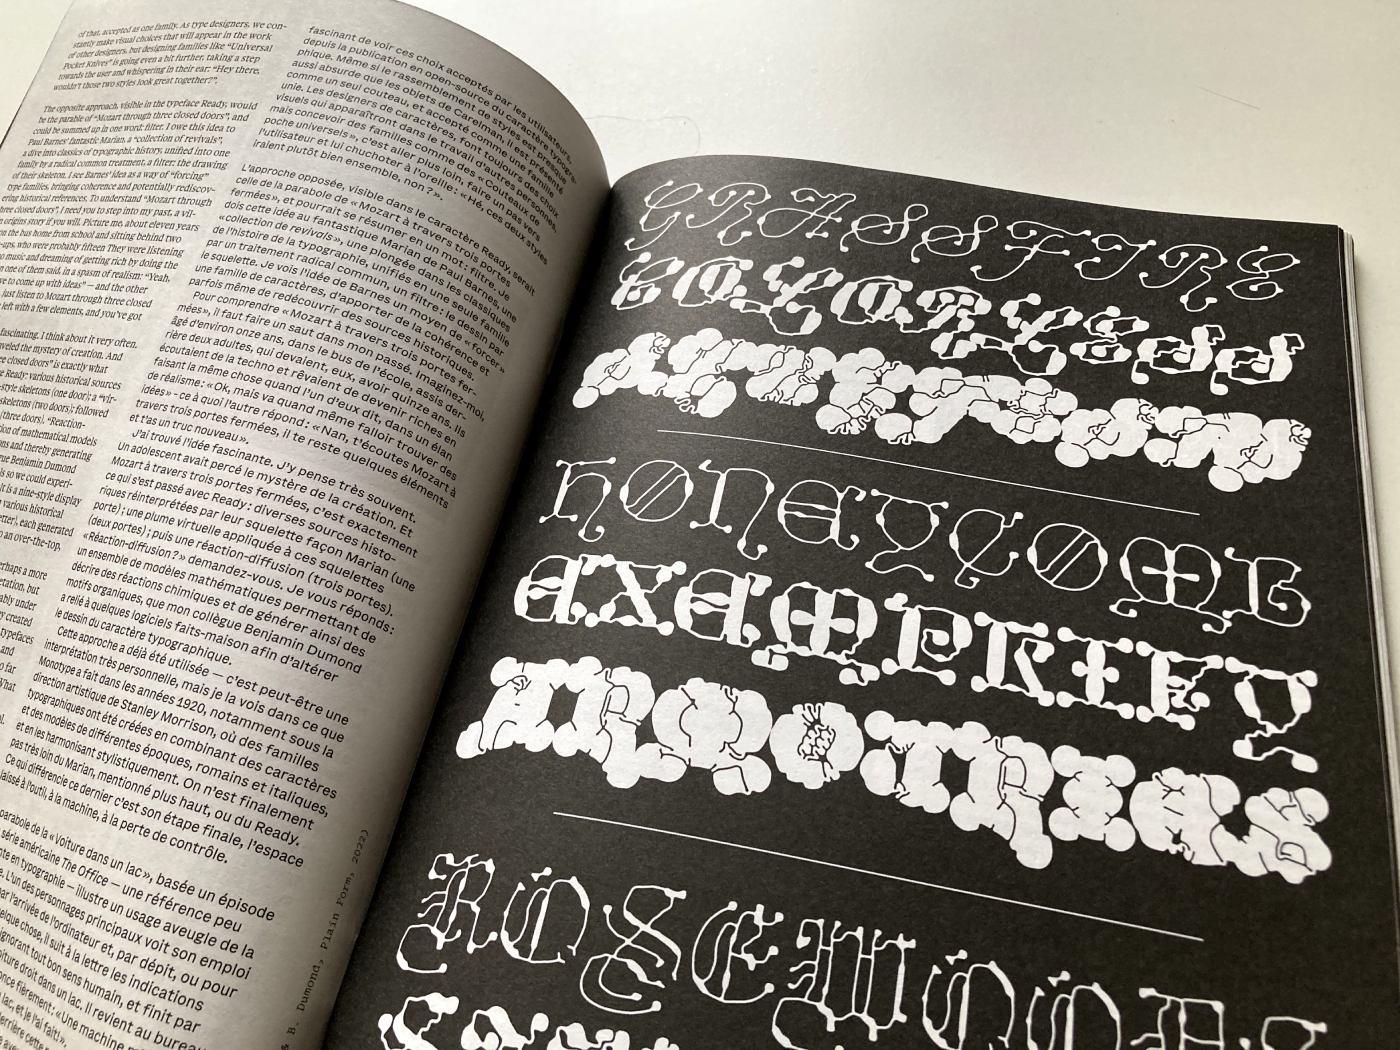 of that, accepted as one family. As type designers, we con-
stantly make visual choices that will appear in the work
of other designers, but designing families like “Universal
Pocket Knives” is going even a bit further, taking a step
towards the user and whispering in their ear: “Hey there,
wouldn't those two styles look great together?”.
The opposite approach, visible in the typeface Ready, would
be the parable of “Mozart through three closed doors”, and
could be summed up in one word: filter. I owe this idea to
Paul Barnes' fantastic Marian, a “collection of revivals”,
a dive into classics of typographic history, unified into one
family by a radical common treatment, a filter: the drawing
of their skeleton. I see Barnes' idea as a way of “forcing”
type families, bringing coherence and potentially rediscov-
ering historical references. To understand “Mozart through
three closed doors”, I need you to step into my past, a vil-
origins story if you will. Picture me, about eleven years
on the bus home from school and sitting behind two
-ups, who were probably fifteen They were listening
o music and dreaming of getting rich by doing the
n one of them said, in a spasm of realism: “Yeah,
ve to come up with ideas” — and the other
, just listen to Mozart through three closed
left with a few elements, and you've got
fascinating. I think about it very often.
veled the mystery of creation. And
ee closed doors” is exactly what
g Ready: various historical sources
-style skeletons (one door); a “vir-
skeletons (two doors); followed
(three doors). “Reaction-
tion of mathematical models
ns and thereby generating
gue Benjamin Dumond
ls so we could experi-
It is a nine-style display
various historical
etter), each generated
o an over-the-top,
erhaps a more
etation, but
ably under
y created
typefaces
and
o far
What
fascinant de voir ces choix acceptés par les utilisateurs,
depuis la publication en open-source du caractère typogra-
phique. Même si le rassemblement de styles est presque
aussi absurde que les objets de Carelman, il est présenté
comme un seul couteau, et accepté comme une famille
unie. Les designers de caractères, font toujours des choix
visuels qui apparaîtront dans le travail d'autres personnes,
mais concevoir des familles comme des « Couteaux de
poche universels », c'est aller plus loin, faire un pas vers
l'utilisateur et lui chuchoter à l'oreille : « Hé, ces deux styles
iraient plutôt bien ensemble, non ? ».
L'approche opposée, visible dans le caractère Ready, serait
celle de la parabole de « Mozart à travers trois portes
fermées », et pourrait se résumer en un mot : filtre. Je
dois cette idée au fantastique Marian de Paul Barnes, une
« collection de revivals », une plongée dans les classiques
de l'histoire de la typographie, unifiés en une seule famille
par un traitement radical commun, un filtre : le dessin par
le squelette. Je vois l'idée de Barnes un moyen de « forcer »
une famille de caractères, d'apporter de la cohérence et
parfois même de redécouvrir des sources historiques.
Pour comprendre « Mozart à travers trois portes fer-
mées », il faut faire un saut dans mon passé. Imaginez-moi,
âgé d'environ onze ans, dans le bus de l'école, assis der-
rière deux adultes, qui devaient, eux, avoir quinze ans. Ils
écoutaient de la techno et rêvaient de devenir riches en
faisant la même chose quand l'un d'eux dit, dans un élan
de réalisme : « Ok, mais va quand même falloir trouver des
idées » - ce à quoi l'autre répond : « Nan, t'écoutes Mozart à
travers trois portes fermées, il te reste quelques éléments
et t'as un truc nouveau ».
J'ai trouvé l'idée fascinante. J'y pense très souvent.
Un adolescent avait percé le mystère de la création. Et
Mozart à travers trois portes fermées, c'est exactement
ce qui s'est passé avec Ready : diverses sources histo-
riques réinterprétées par leur squelette façon Marian (une
porte) ; une plume virtuelle appliquée à ces squelettes
(deux portes) ; puis une réaction-diffusion (trois portes).
«Réaction-diffusion ? » demandez-vous. Je vous réponds :
un ensemble de modèles mathématiques permettant de
décrire des réactions chimiques et de générer ainsi des
motifs organiques, que mon collègue Benjamin Dumond
a relié à quelques logiciels faits-maison afin d'altérer
le dessin du caractère typographique.
Cette approche a déjà été utilisée — c'est peut-être une
interprétation très personnelle, mais je la vois dans ce que
Monotype a fait dans les années 1920, notamment sous la
direction artistique de Stanley Morrison, où des familles
typographiques ont été créées en combinant des caractères
et des modèles de différentes époques, romains et italiques,
et en les harmonisant stylistiquement. On n'est finalement
pas très loin du Marian, mentionné plus haut, ou du Ready.
Ce qui différencie ce dernier c'est son étape finale, l'espace
laissé à l'outil, à la machine, à la perte de contrôle.
parabole de la « Voiture dans un lac », basée un épisode
série américaine The Office — une référence peu
nte en typographie — illustre un usage aveugle de la
e. L'un des personnages principaux voit son emploi
par l'arrivée de l'ordinateur et, par dépit, ou pour
elque chose, il suit à la lettre les indications
ignorant tout bon sens humain, et finit par
oiture droit dans un lac. Il revient au bureau
once fièrement : « Une machine
lac, et, je l'ai fait! »,
errière cette
& B. Dumond, Plain Form, 2022)
GRASSFIRE
HONEYCOMB
EXEMPLIFY